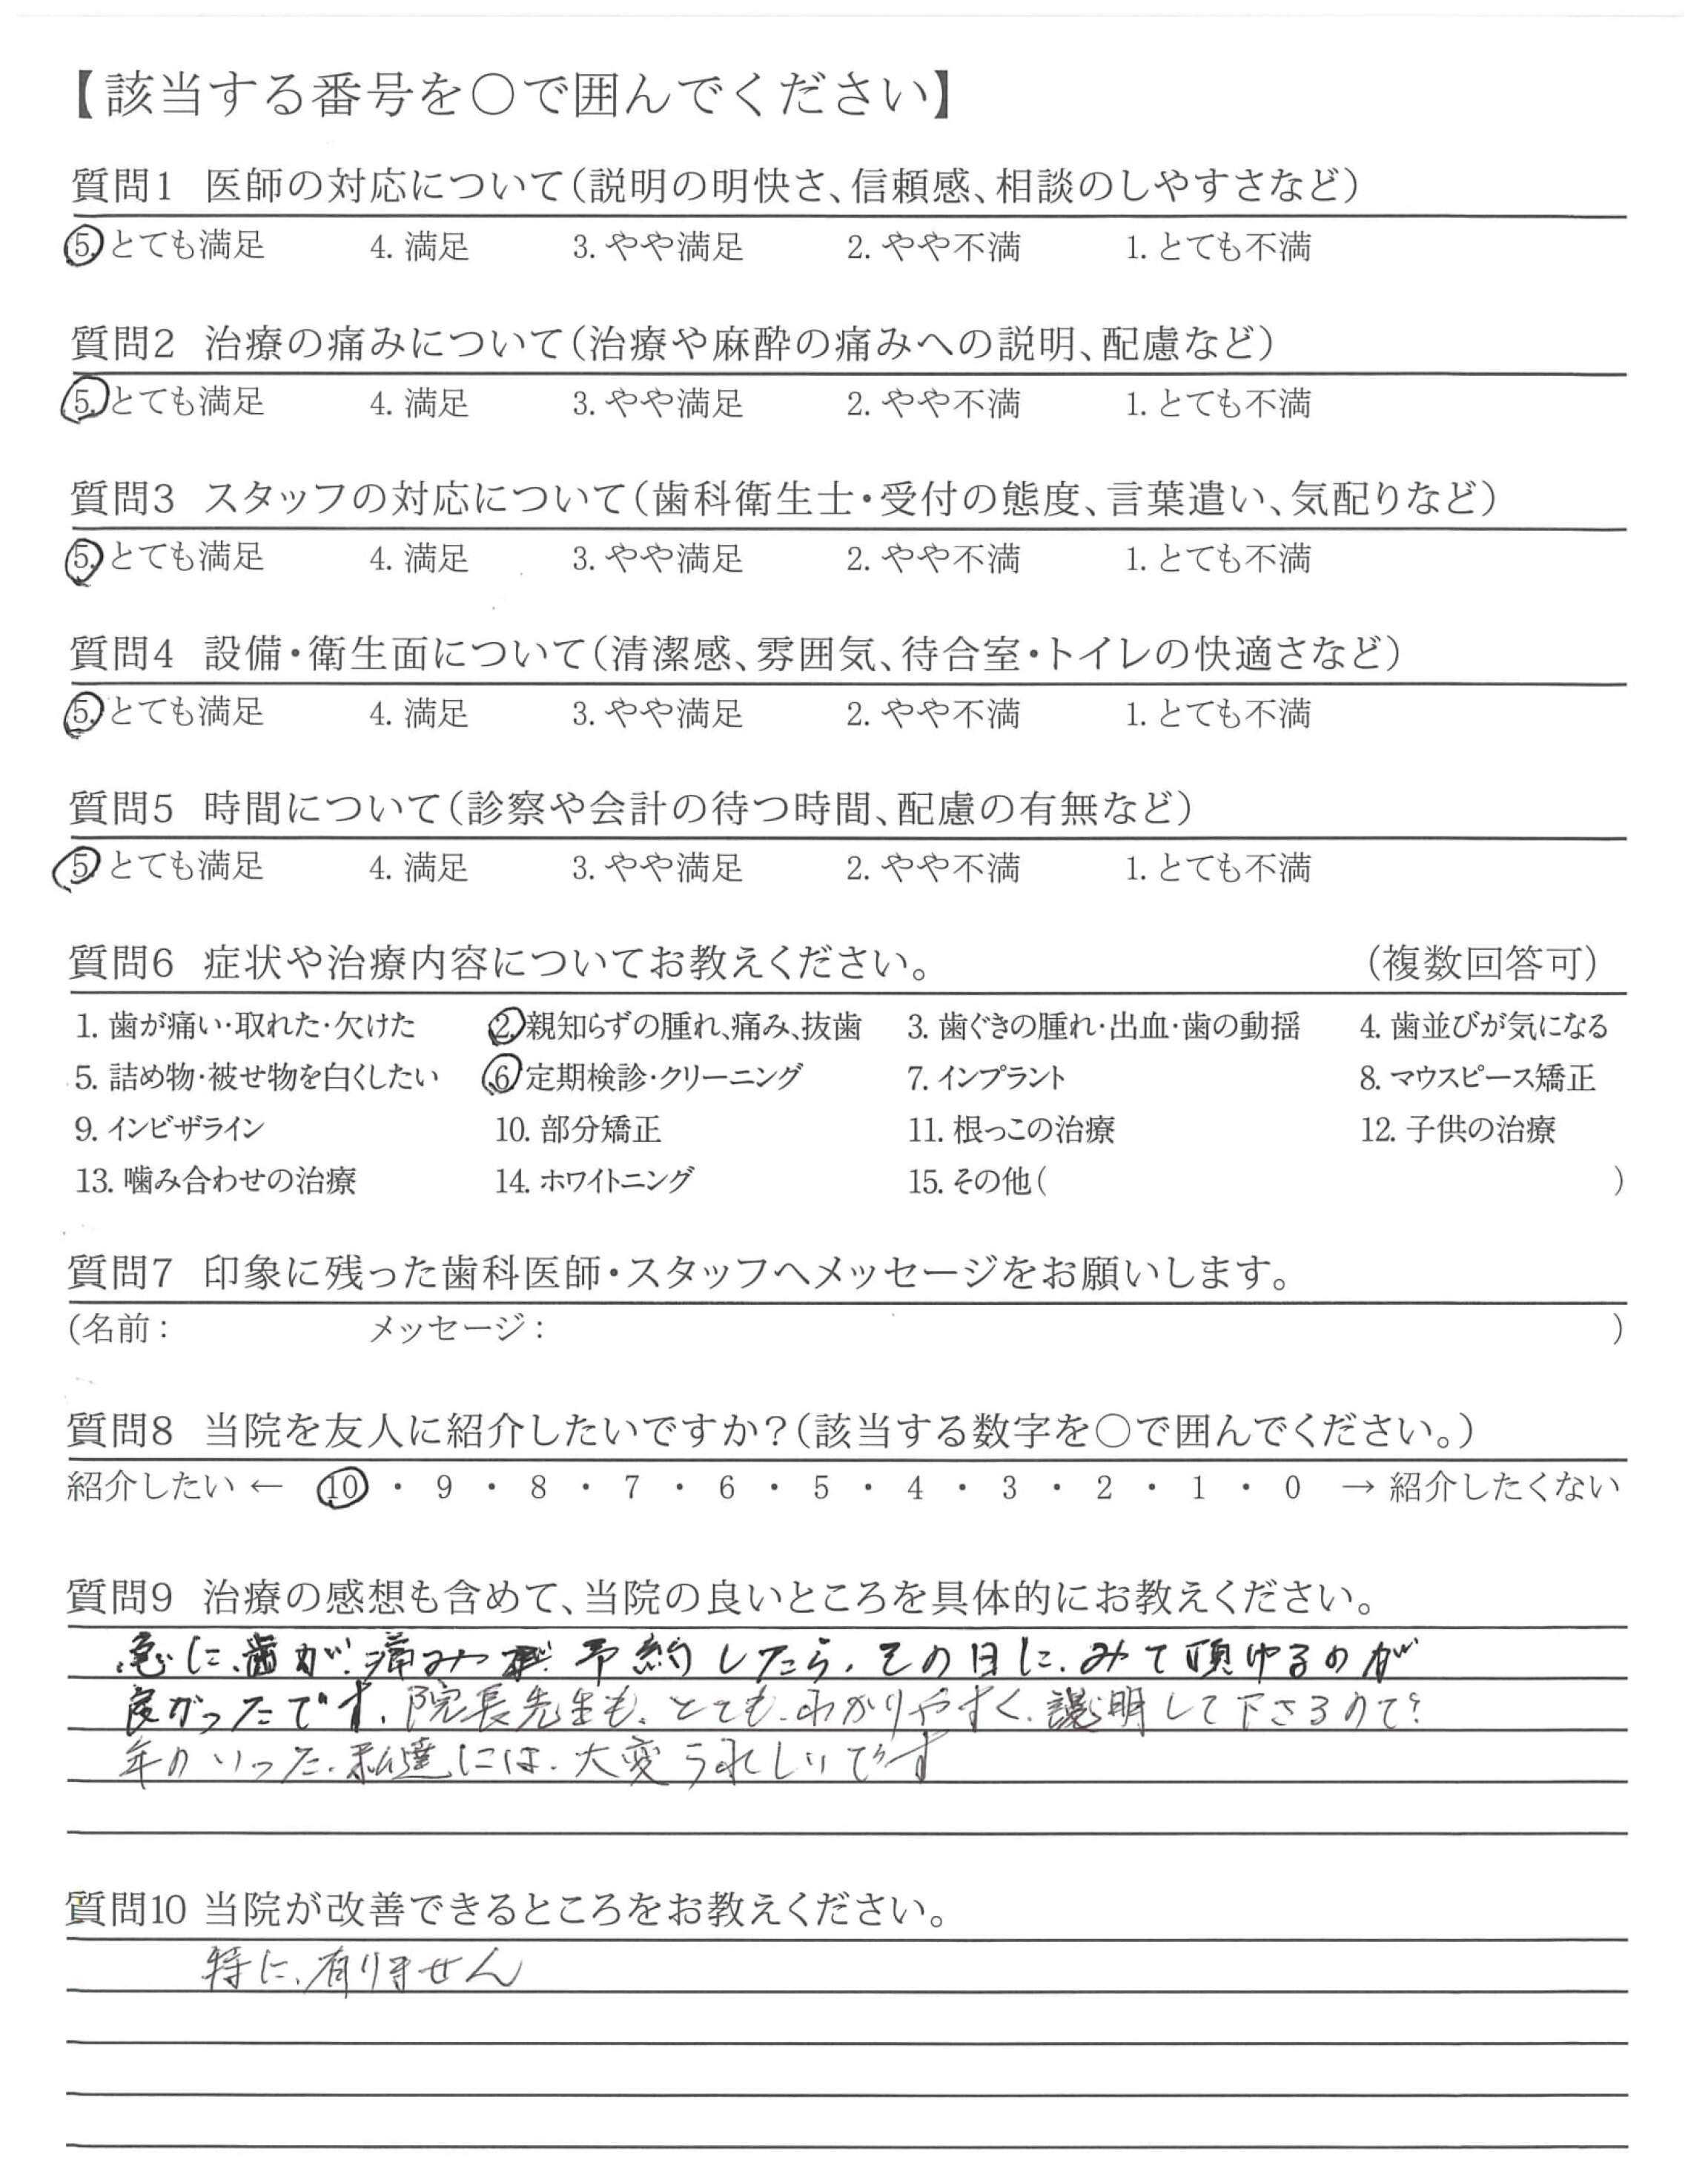 【該当する番号を○で囲んでください】
質問1 医師の対応について(説明の明快さ、信頼感、相談のしやすさなど)
5. とても満足 4. 満足 3. やや満足 2. やや不満 1. とても不満
質問2 治療の痛みについて(治療や麻酔の痛みへの説明、配慮など)
5. とても満足 4. 満足 3. やや満足 2. やや不満 1. とても不満
質問3 スタッフの対応について(歯科衛生士・受付の態度、言葉遣い、気配りなど)
5. とても満足 4. 満足 3. やや満足 2. やや不満 1. とても不満
質問4 設備・衛生面について(清潔感、雰囲気、待合室・トイレの快適さなど)
5. とても満足 4. 満足 3. やや満足 2. やや不満 1. とても不満
質問5 時間について(診察や会計の待つ時間、配慮の有無など)
5. とても満足 4. 満足 3. やや満足 2. やや不満 1. とても不満
質問6 症状や治療内容についてお教えください。 (複数回答可)
1. 歯が痛い・取れた・欠けた 2. 親知らずの腫れ、痛み、抜歯 3. 歯ぐきの腫れ・出血・歯の動揺 4. 歯並びが気になる
5. 詰め物・被せ物を白くしたい 6. 定期検診・クリーニング 7. インプラント 8. マウスピース矯正
9. インビザライン 10. 部分矯正 11. 根っこの治療 12. 子供の治療
13. 噛み合わせの治療 14. ホワイトニング 15. その他( )
質問7 印象に残った歯科医師・スタッフへメッセージをお願いします。
(名前: メッセージ: )
質問8 当院を友人に紹介したいですか?(該当する数字を○で囲んでください。)
紹介したい ← 10 ・ 9 ・ 8 ・ 7 ・ 6 ・ 5 ・ 4 ・ 3 ・ 2 ・ 1 ・ 0 → 紹介したくない
質問9 治療の感想も含めて、当院の良いところを具体的にお教えください。
急に、歯が、痛み 予約したら、その日に、みて頂ゆるのが
良かったです、院長先生も、とても、わかりやすく、説明して下さるので、
年のいった、私達には、大変うれしいです
質問10 当院が改善できるところをお教えください。
特に、有りません